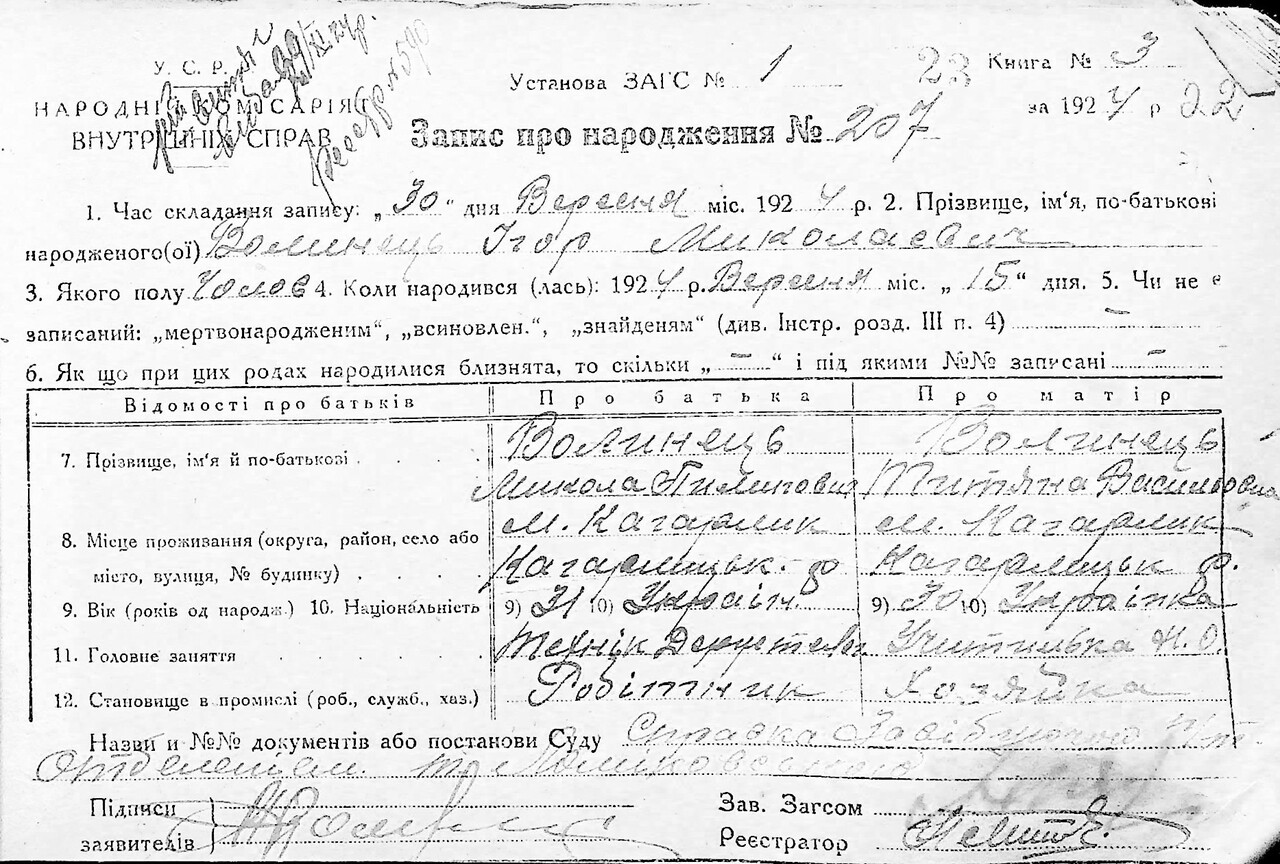 У. С. Р.
НАРОДНІЙ КОМІСАРІЯТ
ВНУТРІШНІХ СПРАВ
Установа ЗАГС № 1
22 Книга № 3
за 1924 р 22
Запис про народження № 207
1. Час складання запису: „30“ дня Вересня міс. 1924 р. 2. Прізвище, ім'я, по-батькові
народженого(ої) Волинець Ігор Миколаєвич
3. Якого полу Чолов 4. Коли народився (лась): 1924 р. Вересня міс. „15“ дня. 5. Чи не є
записаний: „мертвонародженим“, „всиновлен.“, „знайденям“ (див. Інстр. розд. III п. 4) —
6. Як що при цих родах народилися близнята, то скільки „—“ і під якими №№ записані —
Відомості про батьків Про батька Про матір
7. Прізвище, ім'я й по-батькові Волинець Волинець
Микола Пименович Титяна Васильовна
м. Кагарлик м. Кагарлик
8. Місце проживання (округа, район, село або
місто, вулиця, № будинку) Кагарлицьк. р Кагарлицьк р.
9. Вік (років од народж.) 10. Національність 9) 31 10) Україн. 9) 30 10) Українка
11. Головне заняття Технік Учителька
12. Становище в промислі (роб., служб., хаз.) Робітник Хозяйка
Назви и №№ документів або постанови Суду Справка
Підписи
заявителів
Зав. Загсом
Реєстратор